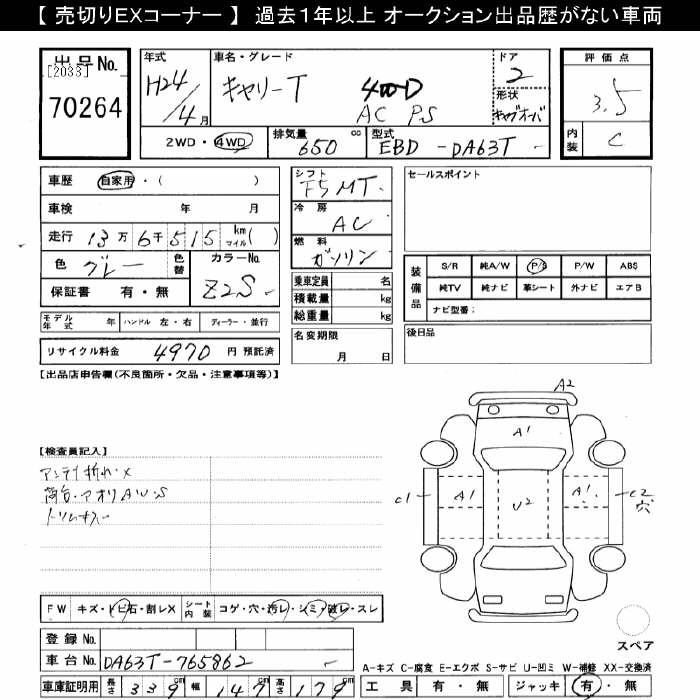 【 売切りEXコーナー 】 過去1年以上 オークション出品歴がない車両
出品No.
[2033]
70264
年式
H24/4月
車名・グレード
キャリーT 400D
AC PS
ドア
2
形状
キャブオーバ
評価点
3.5
内装
C
2WD・4WD
排気量 650 cc
型式 EBD-DA63T
車歴 自家用・( )
車検 年 月
走行 13万6千515 km マイル( )
色 グレー
色替
カラーNo. Z2S
保証書 有・無
シフト F5 MT
冷房 AC
燃料 ガソリン
乗車定員 名
積載量 kg
総重量 kg
セールスポイント
装備品
S/R 純A/W P/S P/W ABS
純TV 純ナビ 革シート 外ナビ エアB
ナビ型番:
モデル年式 年 ハンドル 左・右 ディーラー・並行
リサイクル料金 4970 円 預託済
名変期限 月 日
後日品
【出品店申告欄(不良箇所・欠品・注意事項等)】
【検査員記入】
アンテナ折れ×
荷台・アオリAU・S
トリムキズ
A2
A1
C1 A1 U2 A1 C2
穴
FW キズ・トビ石・割レX シート内装 コゲ・穴・汚レ・シミ・破レ・スレ
登録No.
車台No. DA63T-765862
スペア
A-キズ C-腐食 E-エクボ S-サビ U-凹ミ W-補修 XX-交換済
車庫証明用 長さ 339cm 幅 147cm 高さ 179cm
工具 有・無 ジャッキ 有・無